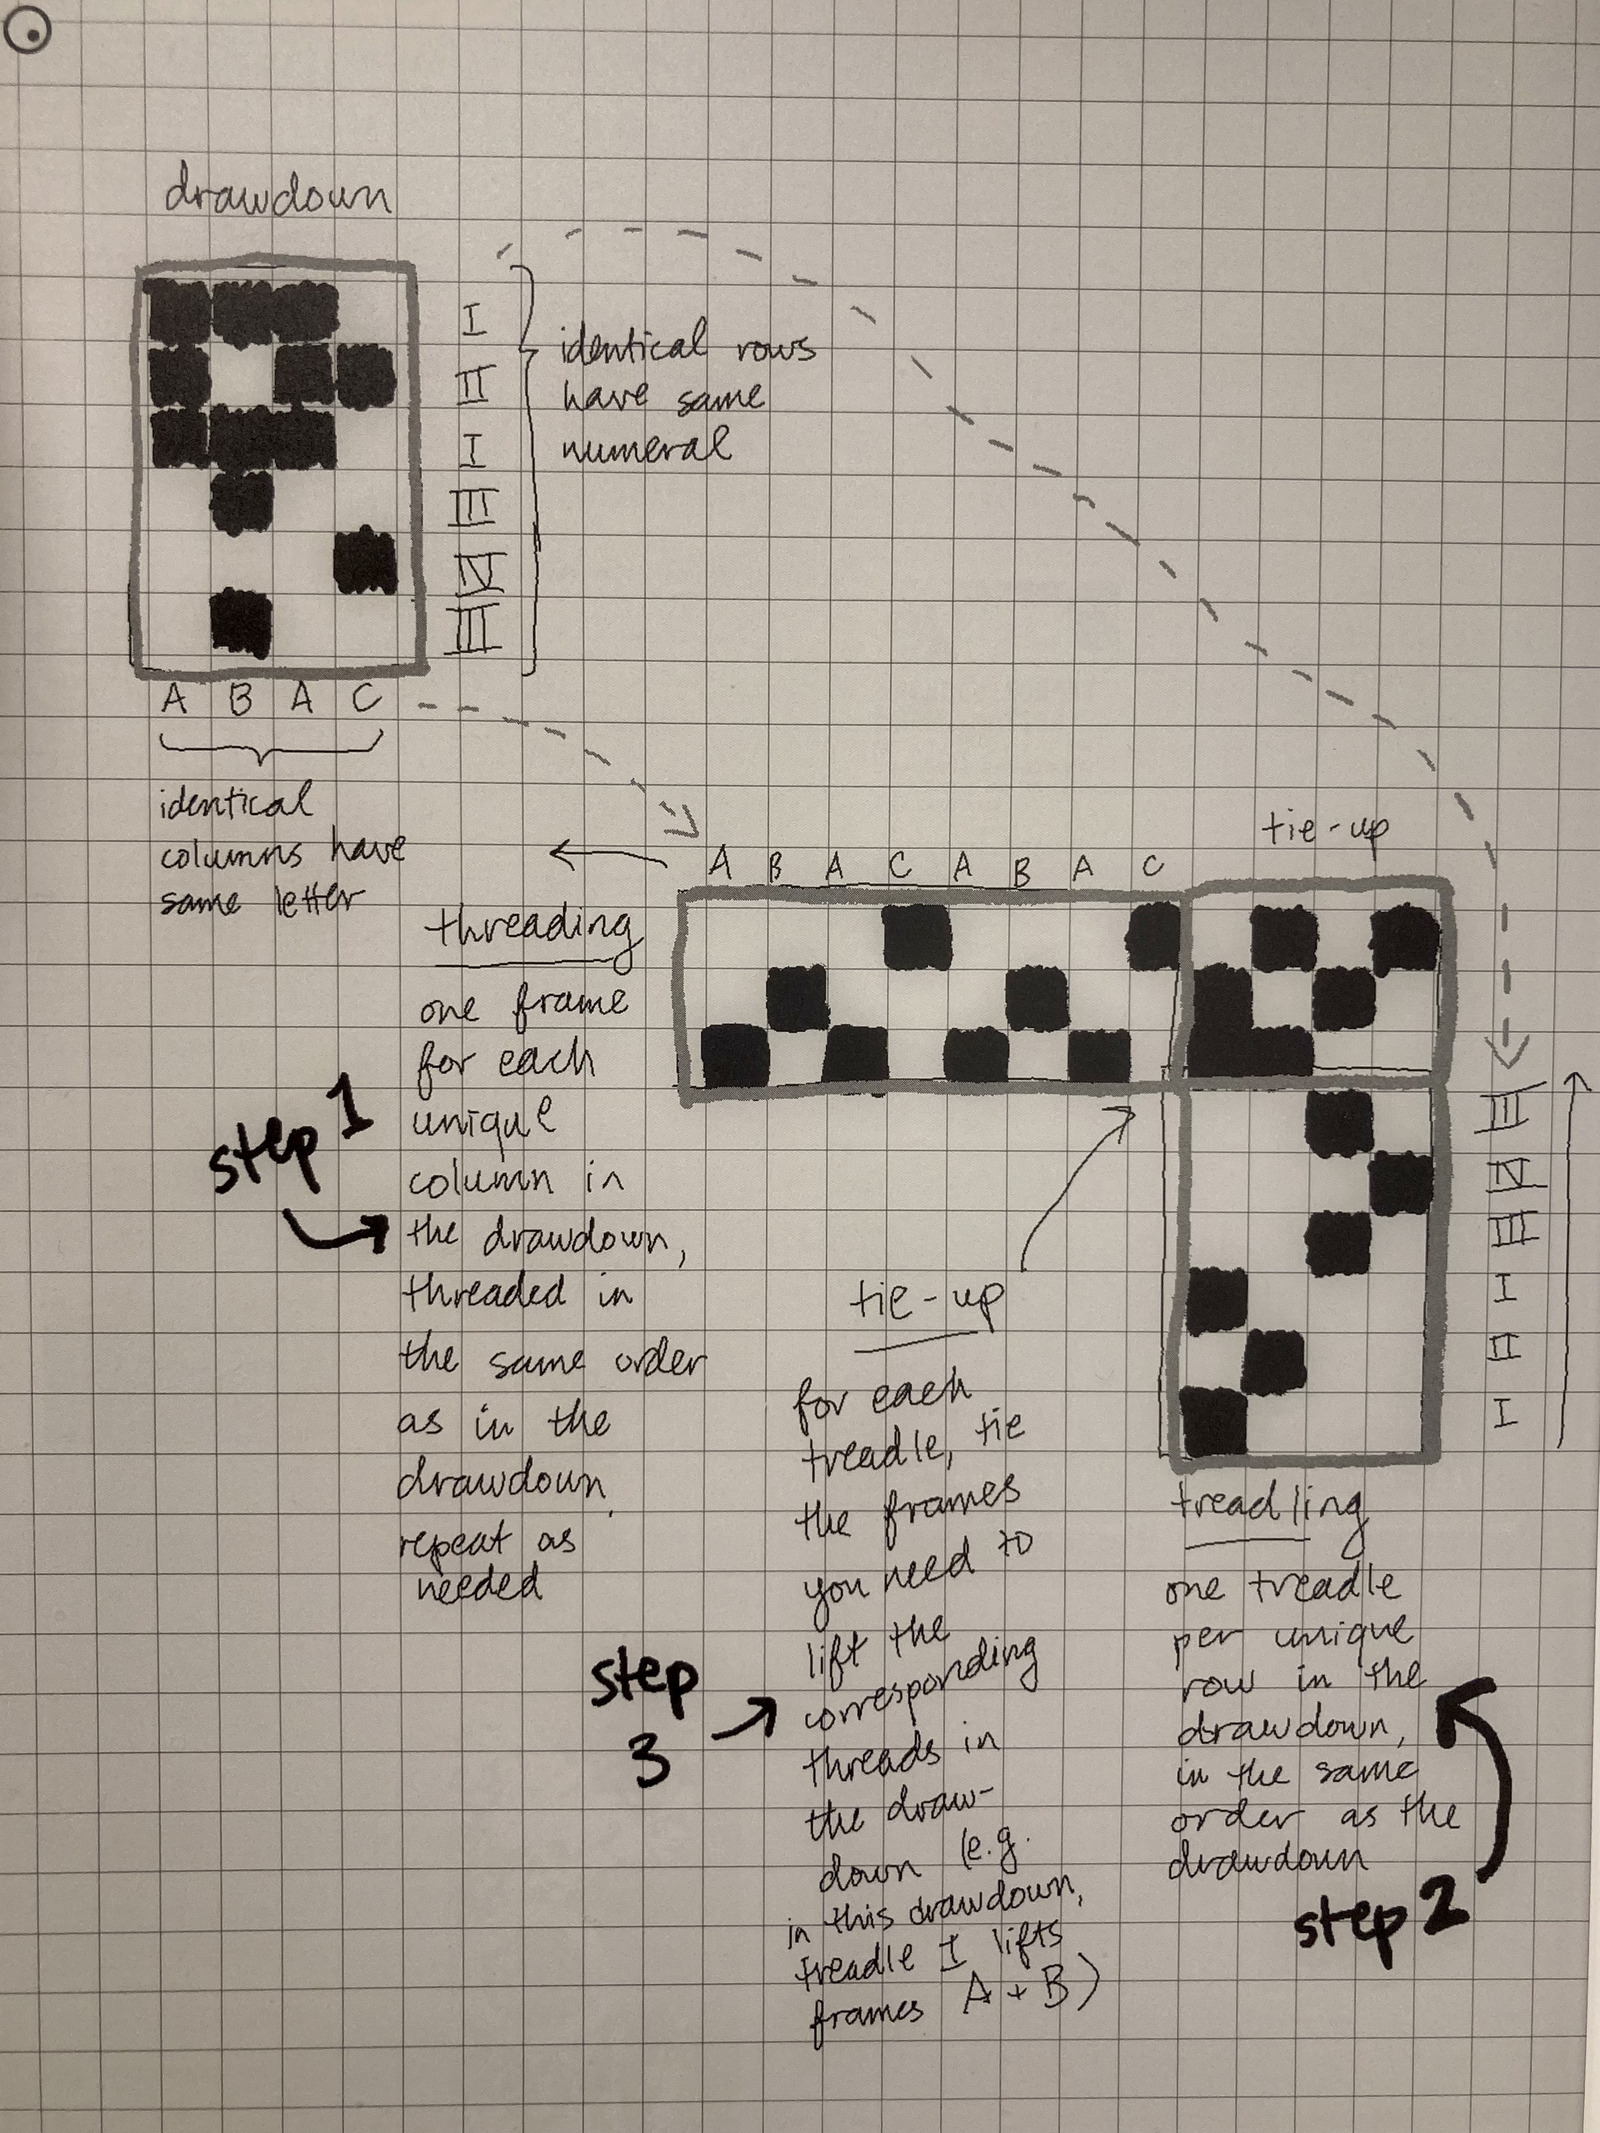 drawdown
I
II
I
III
IV
III
identical rows
have same
numeral
A B A C
identical
columns have
same letter
A B A C A B A C
tie-up
threading
one frame
for each
unique
column in
the drawdown,
threaded in
the same order
as in the
drawdown,
repeat as
needed
step 1
III
IV
III
I
II
I
tie-up
for each
treadle, tie
the frames
you need to
lift the
corresponding
threads in
the draw-
down (e.g.
in this drawdown,
treadle I lifts
frames A + B)
step
3
treadling
one treadle
per unique
row in the
drawdown,
in the same
order as the
drawdown
step 2